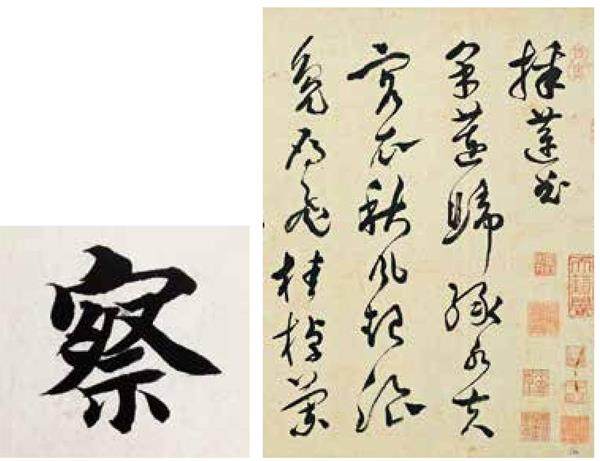 察
採蓮曲
采蓮歸綠水芙
蓉衣秋風起浪
鳧雁飛桂棹蘭